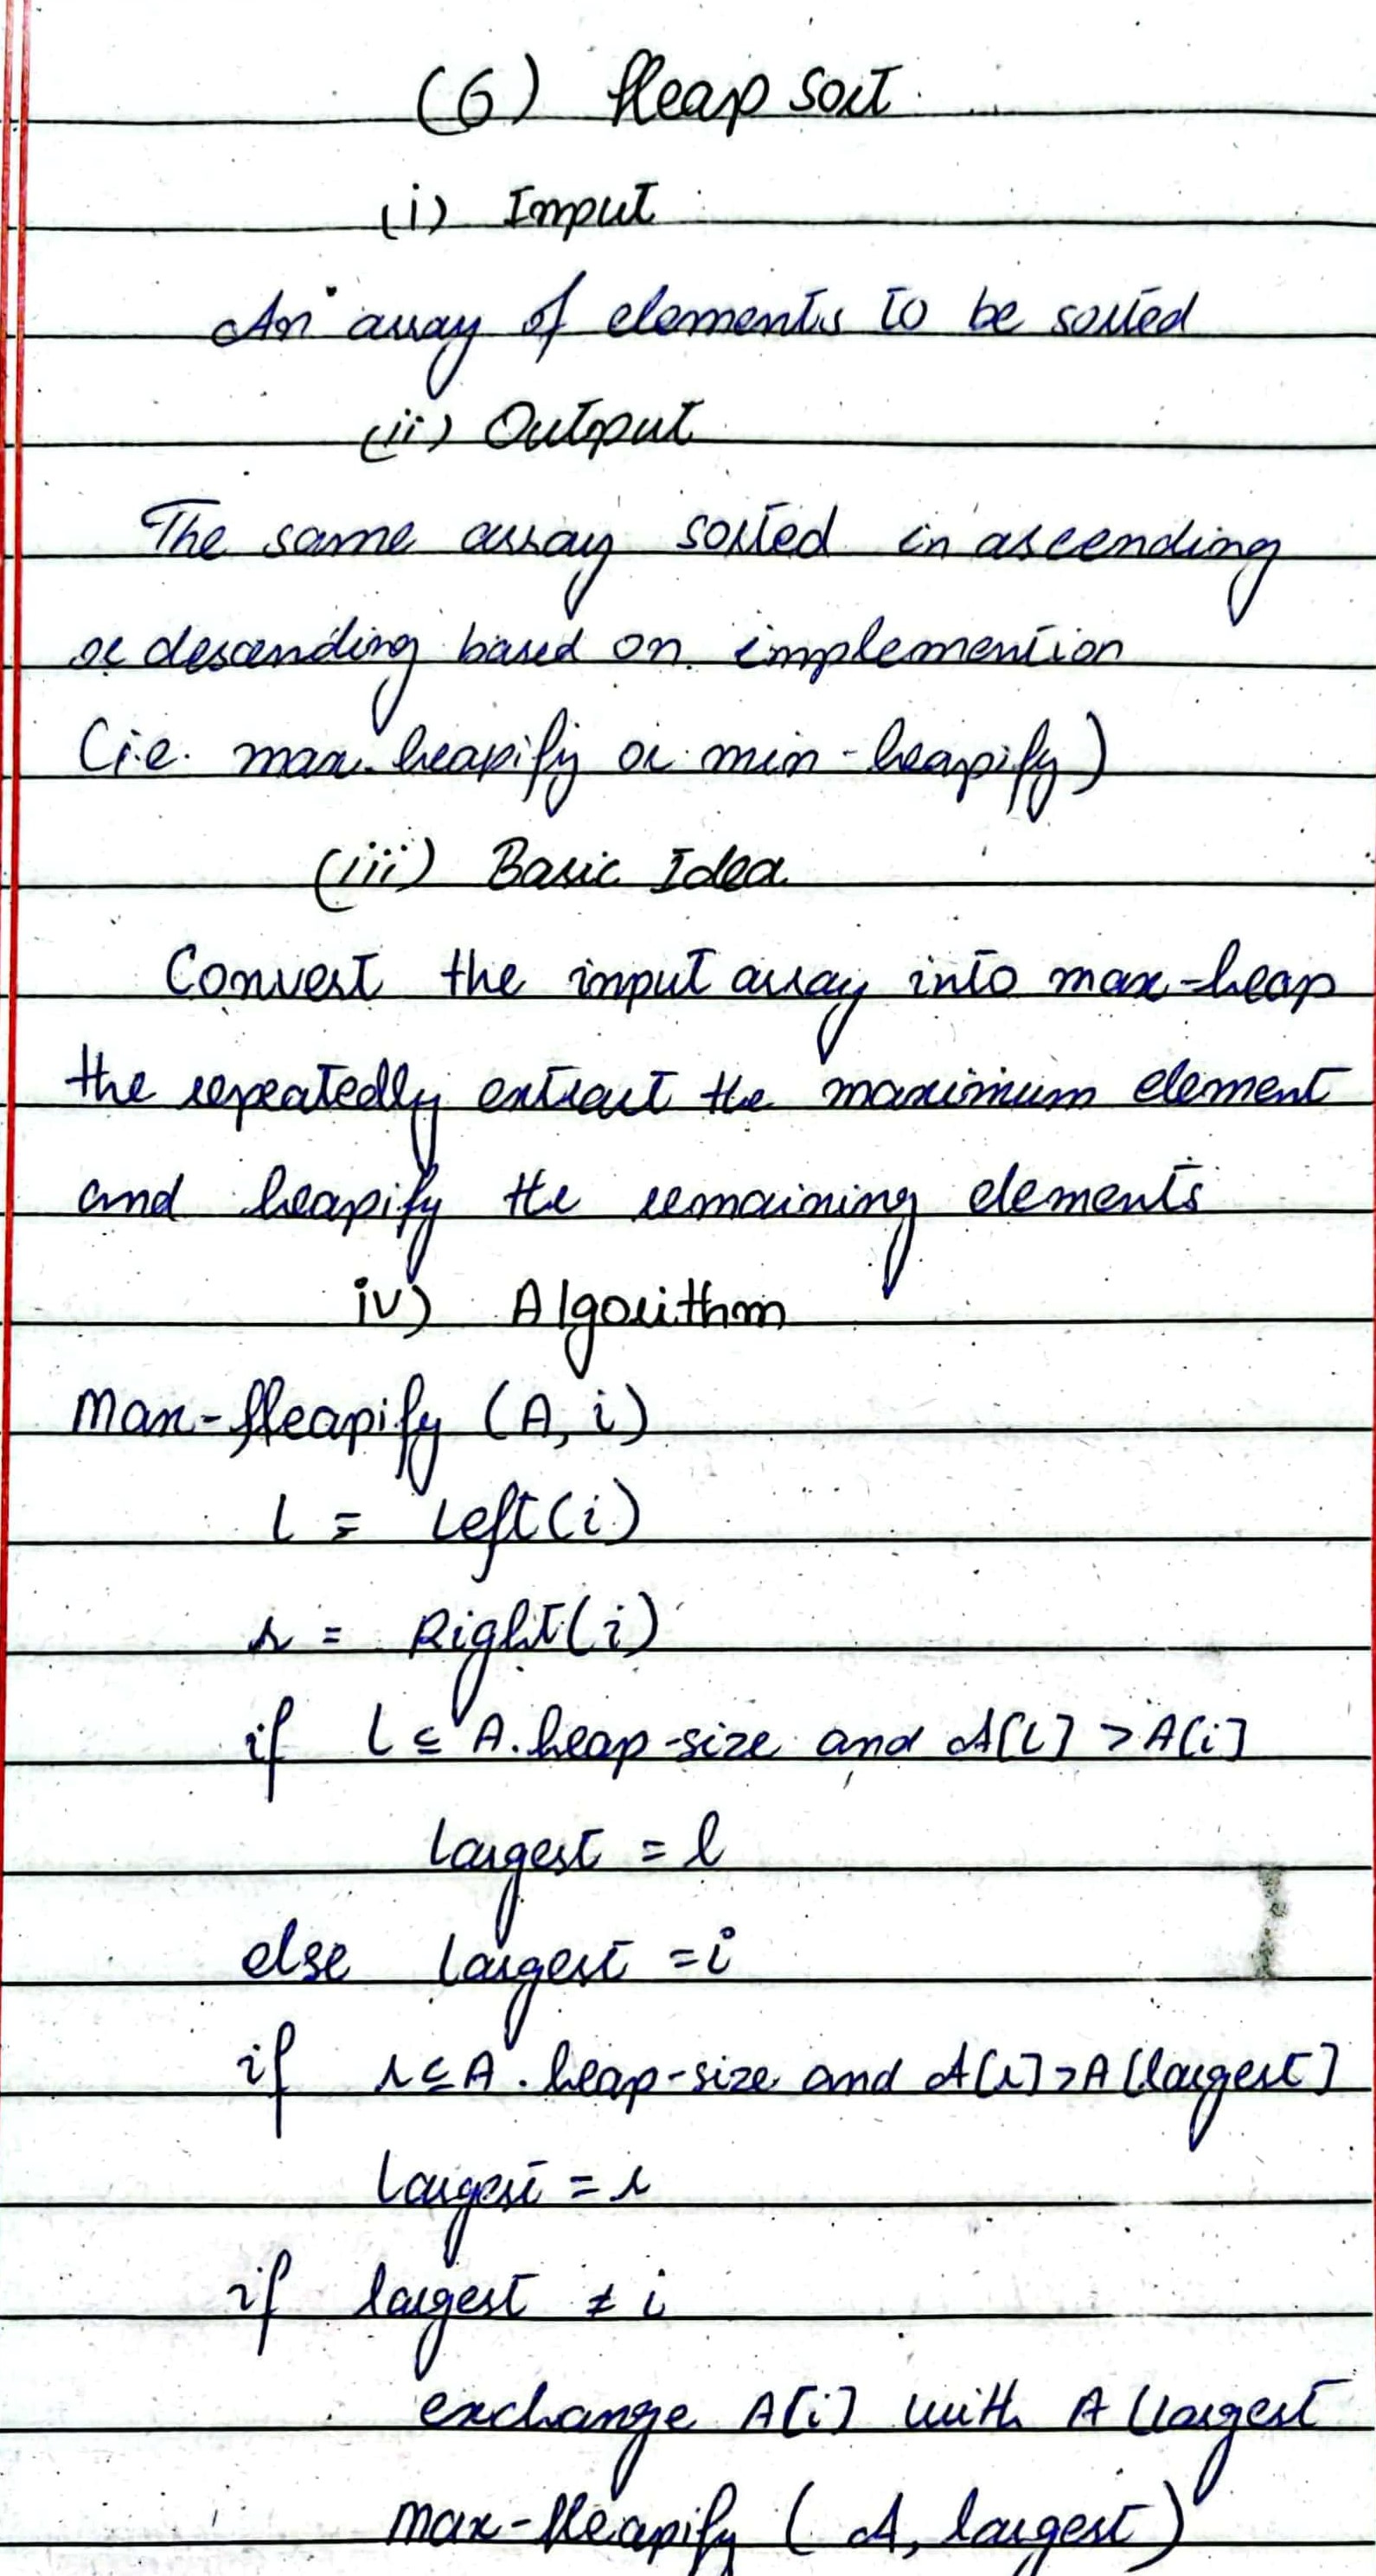 (6) Heap Sort
(i) Input
An array of elements to be sorted
(ii) Output
The same array sorted in ascending
or descending based on implemention
(i.e. max-heapify or min-heapify)
(iii) Basic Idea
Convert the input array into max-heap
the repeatedly extract the maximum element
and heapify the remaining elements
iv) Algorithm
Max-Heapify (A, i)
l = Left(i)
r = Right(i)
if l ≤ A.heap-size and A[l] > A[i]
largest = l
else largest = i
if r ≤ A.heap-size and A[r] > A[largest]
largest = r
if largest ≠ i
exchange A[i] with A[largest
Max-Heapify (A, largest)